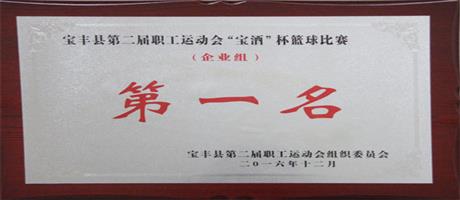 宝丰县第二届职工运动会“宝酒”杯篮球比赛
（企业组）
第一名
宝丰县第二届职工运动会组织委员会
二〇一六年十二月